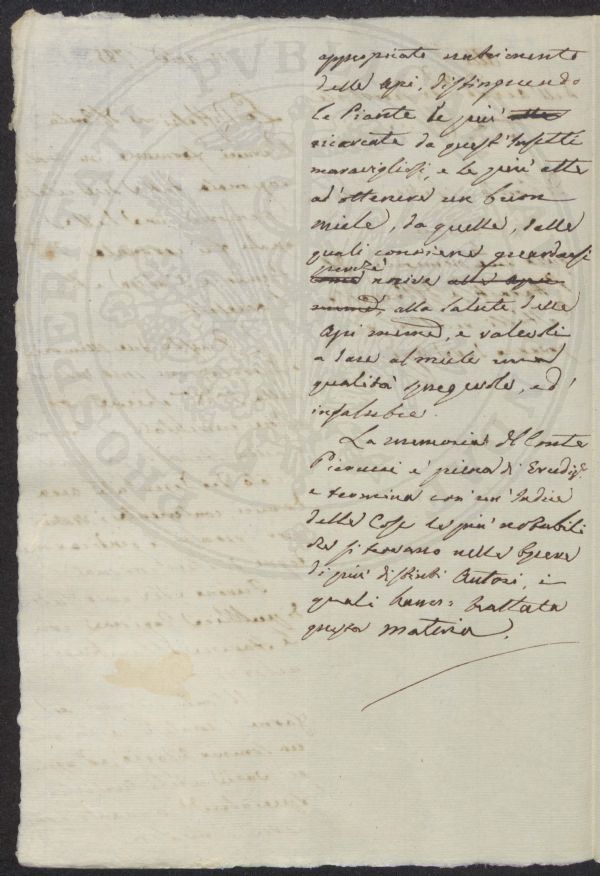 appropriato nutrimento
delle api, distinguendo
le Piante le piu' atte
ricercate da quest'Insetti
maravigliosi, e le piu' atte
ad' ottenere un buon
miele, da quelle, dalle
quali conviene guardarsi
perchè nocive alle Api
alla salute delle
Api, e valevoli
a dare al miele una
qualità spregevole, ed'
insalubre.
La memoria del Conte
è piena di Erudiz.e
e termina con' un' Indice
delle Cose le piu' notabili
che si trovano nelle Opere
di piu' distinti Autori, i
quali hanno trattata
questa materia.
PVBLI
PROSPERITATI